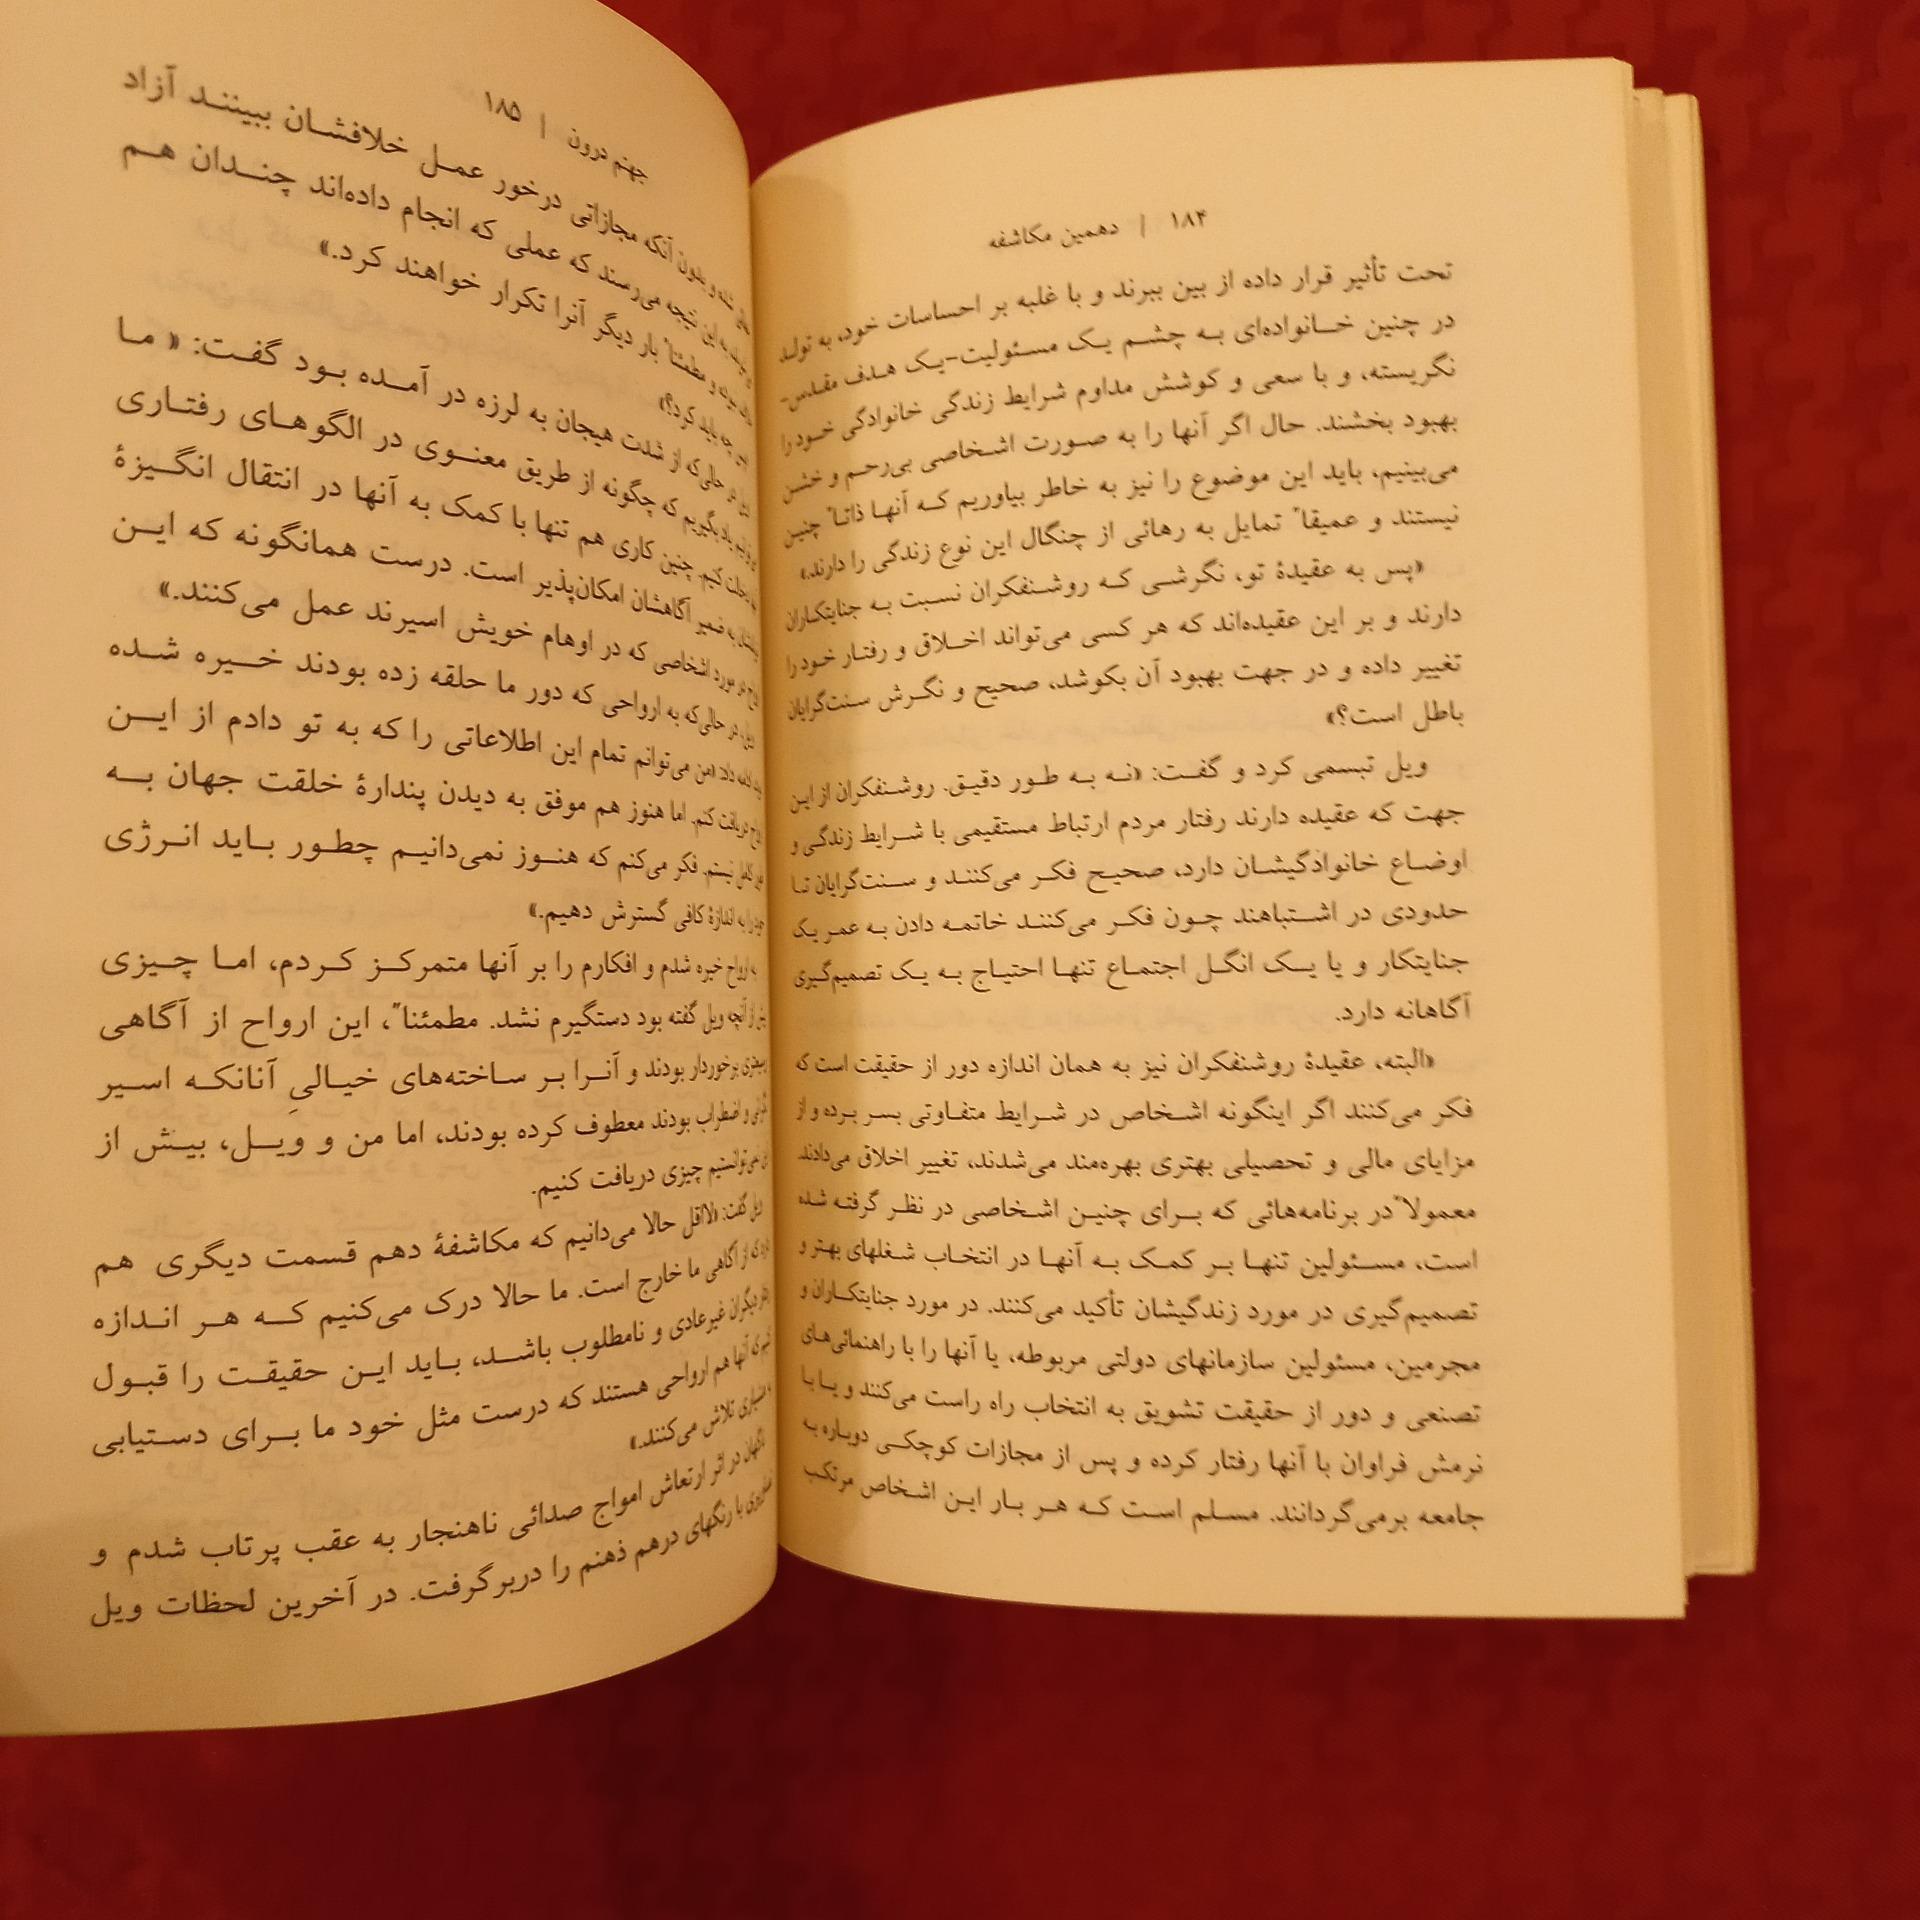 ۱۸۴ | دهمین مکاشفه
تحت تأثیر قرار داده از بین ببرند و با غلبه بر احساسات خود، به تولد
در چنین خانواده‌ای به چشم یک مسئولیت-یک هدف مقدس-
نگریسته، و با سعی و کوشش مداوم شرایط زندگی خانوادگی خود را
بهبود بخشند. حال اگر آنها را به صورت اشخاصی بی‌رحم و خشن
می‌بینیم، باید این موضوع را نیز به خاطر بیاوریم که آنها ذاتاً چنین
نیستند و عمیقاً تمایل به رهائی از چنگال این نوع زندگی را دارند.»
«پس به عقیدهٔ تو، نگرشی که روشنفکران نسبت به جنایتکاران
دارند و بر این عقیده‌اند که هر کسی می‌تواند اخلاق و رفتار خود را
تغییر داده و در جهت بهبود آن بکوشد، صحیح و نگرش سنت‌گرایان
باطل است؟»
ویل تبسمی کرد و گفت: «نه به طور دقیق. روشنفکران از این
جهت که عقیده دارند رفتار مردم ارتباط مستقیمی با شرایط زندگی و
اوضاع خانوادگیشان دارد، صحیح فکر می‌کنند و سنت‌گرایان تا
حدودی در اشتباهند چون فکر می‌کنند خاتمه دادن به عمر یک
جنایتکار و یا یک انگل اجتماع تنها احتیاج به یک تصمیم‌گیری
آگاهانه دارد.
«البته، عقیدهٔ روشنفکران نیز به همان اندازه دور از حقیقت است که
فکر می‌کنند اگر اینگونه اشخاص در شرایط متفاوتی بسر برده و از
مزایای مالی و تحصیلی بهتری بهره‌مند می‌شدند، تغییر اخلاق می‌دادند.
معمولاً در برنامه‌هائی که برای چنین اشخاصی در نظر گرفته شده
است، مسئولین تنها بر کمک به آنها در انتخاب شغلهای بهتر و
تصمیم‌گیری در مورد زندگیشان تأکید می‌کنند. در مورد جنایتکاران و
مجرمین، مسئولین سازمانهای دولتی مربوطه، یا آنها را با راهنمائی‌های
تصنعی و دور از حقیقت تشویق به انتخاب راه راست می‌کنند و یا با
نرمش فراوان با آنها رفتار کرده و پس از مجازات کوچکی دوباره به
جامعه برمی‌گردانند. مسلم است که هر بار این اشخاص مرتکب
جهنم درون | ۱۸۵
شده و بدون آنکه مجازاتی درخور عمل خلافشان ببینند آزاد
به این نتیجه می‌رسند که عملی که انجام داده‌اند چندان هم
بوده و مطمئناً بار دیگر آنرا تکرار خواهند کرد.»
چه باید کرد؟»
در حالی‌که از شدت هیجان به لرزه در آمده بود گفت: « ما
یاد بگیریم که چگونه از طریق معنوی در الگوهای رفتاری
کنیم. چنین کاری هم تنها با کمک به آنها در انتقال انگیزهٔ
به ضمیر آگاهشان امکان‌پذیر است. درست همانگونه که این
در مورد اشخاصی که در اوهام خویش اسیرند عمل می‌کنند.»
در حالی‌که به ارواحی که دور ما حلقه زده بودند خیره شده
ادامه داد: «من می‌توانم تمام این اطلاعاتی را که به تو دادم از این
دریافت کنم. اما هنوز هم موفق به دیدن پندارهٔ خلقت جهان به
کامل نیستم. فکر می‌کنم که هنوز نمی‌دانیم چطور باید انرژی
را به اندازهٔ کافی گسترش دهیم.»
به ارواح خیره شدم و افکارم را بر آنها متمرکز کردم، اما چیزی
از آنچه ویل گفته بود دستگیرم نشد. مطمئناً، این ارواح از آگاهی
برخوردار بودند و آنرا بر ساخته‌های خیالیِ آنانکه اسیر
و اضطراب بودند معطوف کرده بودند، اما من و ویل، بیش از
نمی‌توانستیم چیزی دریافت کنیم.
ویل گفت: «لااقل حالا می‌دانیم که مکاشفهٔ دهم قسمت دیگری هم
از آگاهی ما خارج است. ما حالا درک می‌کنیم که هر اندازه
دیگران غیرعادی و نامطلوب باشد، باید این حقیقت را قبول
آنها هم ارواحی هستند که درست مثل خود ما برای دستیابی
تلاش می‌کنند.»
ناگهان در اثر ارتعاش امواج صدائی ناهنجار به عقب پرتاب شدم و
با رنگهای درهم ذهنم را دربرگرفت. در آخرین لحظات ویل